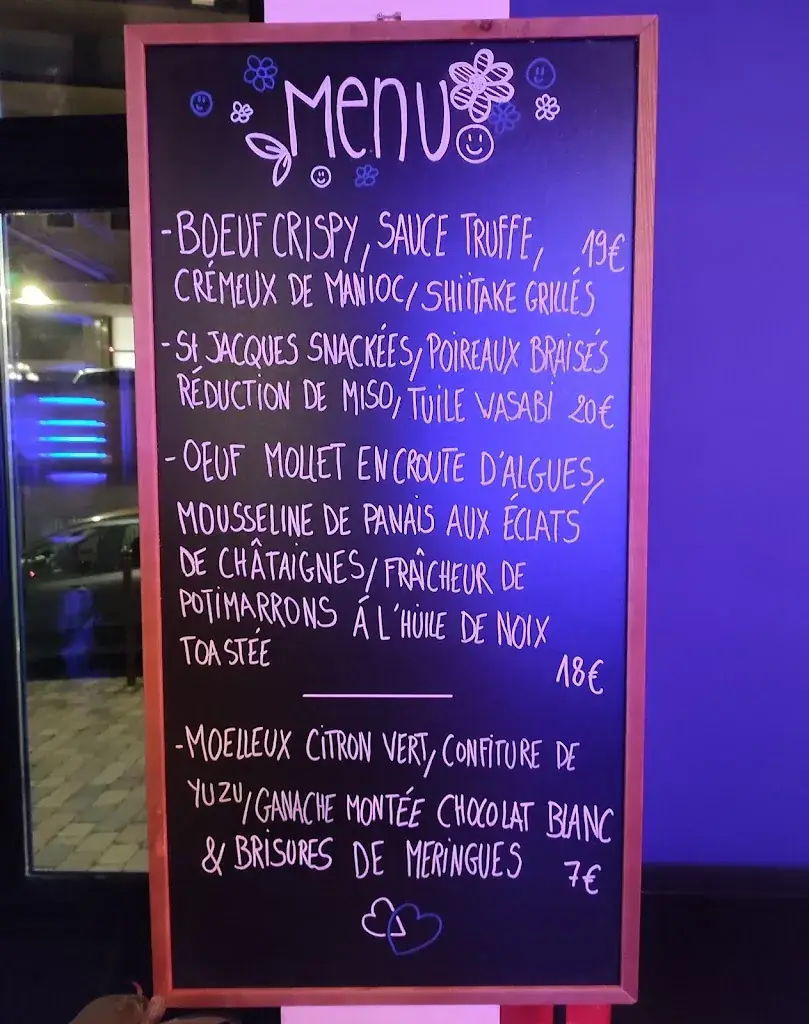 Menu
- BOEUF CRISPY, SAUCE TRUFFE, 19€
CRÉMEUX DE MANIOC/SHIITAKE GRILLÉS
- St JACQUES SNACKÉES, POIREAUX BRAISÉS
RÉDUCTION DE MISO, TUILE WASABI 20€
- OEUF MOLLET EN CROUTE D'ALGUES,
MOUSSELINE DE PANAIS AUX ÉCLATS
DE CHÂTAIGNES/FRAÎCHEUR DE
POTIMARRONS Á L'HUILE DE NOIX
TOASTÉE
18€
- MOELLEUX CITRON VERT, CONFITURE DE
YUZU/GANACHE MONTÉE CHOCOLAT BLANC
& BRISURES DE MERINGUES 7€